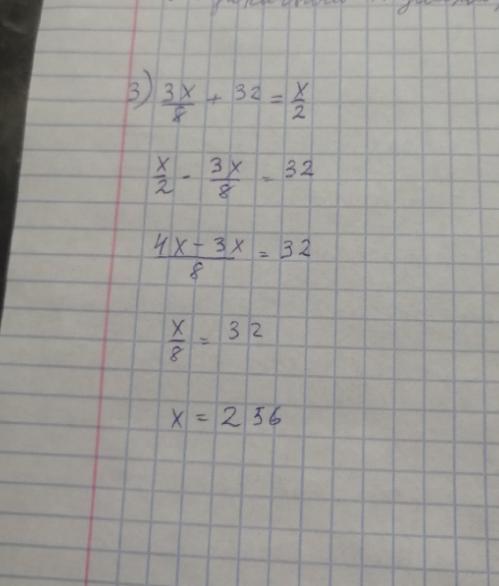 3) 3x/8 + 32 = x/2
x/2 - 3x/8 = 32
4x - 3x/8 = 32
x/8 = 32
x = 256